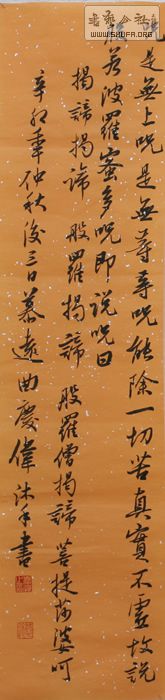 咒是無上咒是無等等咒能除一切苦真實不虛故說
般若波羅蜜多咒即說咒曰
揭諦揭諦 般羅揭諦 般羅僧揭諦 菩提莎婆呵
辛卯年仲秋後三日慕遠曲慶偉沐手書
書法公社
WWW.SHUFA.ORG